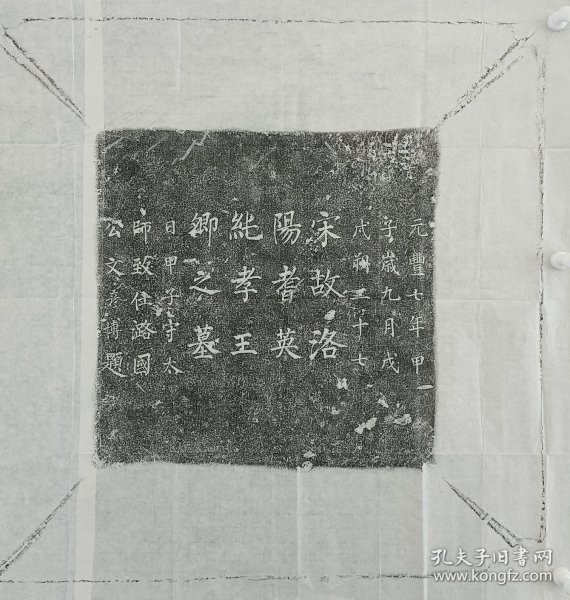 元豐七年甲
子歲九月戊
戌朔二十七
宋故洛
陽耆英
純孝王
卿之墓
日甲子守太
師致仕潞國
公文彦博題
孔夫子旧书网
www.kongfz.com